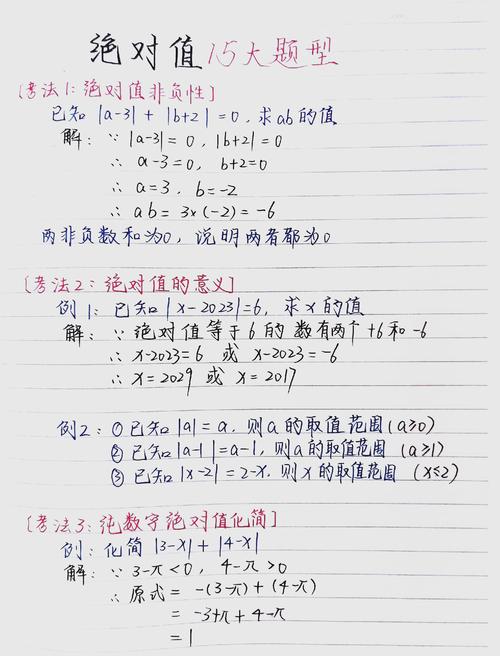 绝对值15大题型
[考法1:绝对值非负性]
已知 |a-3| + |b+2| = 0,求ab的值
解: ∵ |a-3| = 0, |b+2| = 0
∴ a-3=0, b+2=0
∴ a=3, b=-2
∴ ab = 3×(-2) = -6
两非负数和为0,说明两者都为0
[考法2:绝对值的意义]
例1:已知|x-2023|=6,求x的值
解: ∵ 绝对值等于6的数有两个+6和-6
∴ x-2023=6 或 x-2023=-6
∴ x=2029 或 x=2017
例2:①已知|a|=a,则a的取值范围(a≥0)
②已知|a-1|=a-1,则a的取值范围 (a≥1)
③已知|x-2|=2-x,则x的取值范围 (x≤2)
[考法3:纯数字绝对值化简]
例:化简 |3-x|+|4-x|
解: ∵ 3-π<0, 4-π>0
∴ 原式= -(3-π)+(4-π)
= -3+π+4-π
= 1